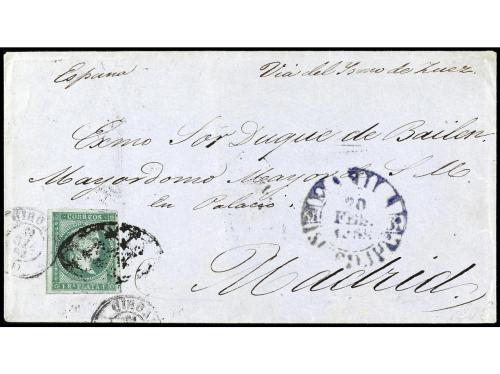 España Via del Ismo de Zuez.
Exmo Sor Duque de Bailen.
Mayordomo Mayor de S. M.
en Palacio
Madrid
CORREOS
20
FEB.